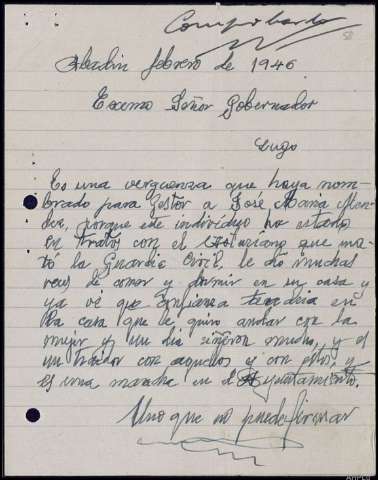 Comprobardo
58
Abadin febrero de 1946
Excmo Señor Gobernador
Lugo
Es una vergüenza que haya nom-
brado para Gestor a José Maria Men-
dez, porque este individuo ha estado
en tratos con el que ma-
tó la Guardia Civil, le dió muchas
veces de comer y dormir en su casa y
ya vé que confianza tendria en
la casa que le quiso andar con la
mujer y un dia riñeron mucho, y es
un traidor con aquellos y con estos y
es una mancha en el Ayuntamiento.
Uno que no puede firmar
AHPLU